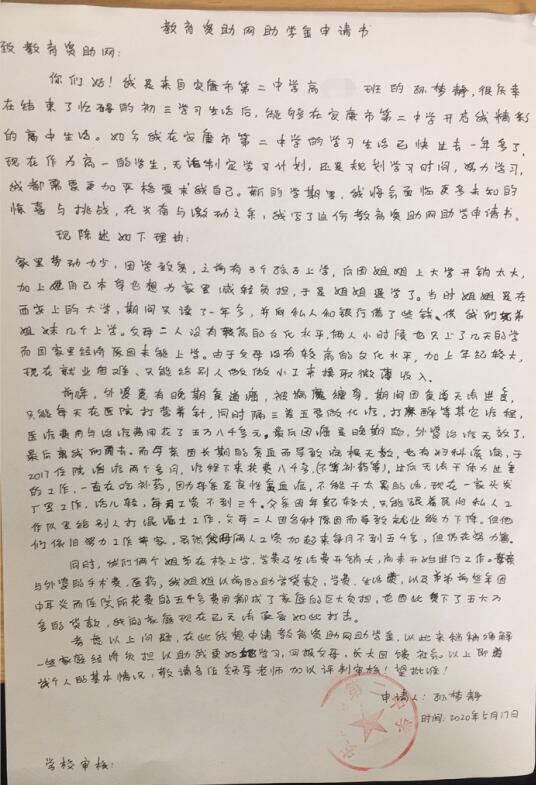 教育资助网助学金申请书
致教育资助网:
你们好!我是来自安康市第二中学高 班的孙梦静,很庆幸
在结束了忙碌的初三学习生活后,能够在安康市第二中学开启我精彩
的高中生活。如今我在安康市第二中学的学习生活已快过去一年多了,
现在作为高一的学生,无论制定学习计划,还是规划学习时间,努力学习,
我都需要更加严格要求我自己。新的学期里,我将会面临更多未知的
惊喜与挑战,在兴奋与激动之余,我写了这份教育资助网助学申请书。
现陈述如下理由:
家里劳动力少,因学致贫,之前有3个孩子上学,后因姐姐上大学开销太大,
加上她自己本身也想为家里减轻负担,于是姐姐退学了。当时姐姐是在
西安上的大学,期间只读了一年多,并向私人和银行借了些钱。供我们
姐妹几个上学。父母二人没有较高的文化水平,俩人小时候也只上了几天的学
而因家里经济原因未能上学。由于父母没有较高的文化水平,加上年纪较大,
现在就业困难、只能给别人做做小工来换取微薄收入。
前年,外婆患有晚期食道癌,被病魔缠身,期间因食道无法进食,
只能每天在医院打营养针,同时隔三差五要做化疗,打麻醉等其它疗程,
医疗费用与治疗费用花了五万八千多元。最后因癌是晚期的,外婆治疗无效了,
最后离我们而去。而母亲因长期的贫血而导致疾病无数,也有妇科疾病,于
2017住院治疗两个多月,疗程下来花费八千多(不算补药等),过后无法干体力过重
的工作,一直在吃补药,因为母亲是良性贫血症,不能干太累的活,现在一家头发
厂里工作,活儿轻,每月工资不到三千。父亲因年纪较大,只能跟着民间私人工
作队里给别人打混泥土工作,父母二人因各种原因而导致就业能力下降。但他
们依旧努力工作养家,虽然俩人工资加起来每月不到五千多,但仍在努力着。
同时,我们两个姐弟在校上学,学费及生活费开销大,尚未开始进行工作。母亲
与外婆的手术费,医药,我姐姐以前的助学贷款,学费、生活费,以及弟弟前些年因
中耳炎而住院所花费的五千多费用都成了家庭的巨大负担,也因此贷下了五大万
多的贷款,我的家庭现在已无法承受如此打击。
考虑以上问题,在此我想申请教育资助网助学金,以此来稍稍缓解
一些家庭经济负担以助我更好地学习,回报父母,长大回馈社会。以上即为
我个人的基本情况,敬请各位领导老师加以评判审核!望批准!
申请人:孙梦静
时间:2020年5月17日
学校审核: